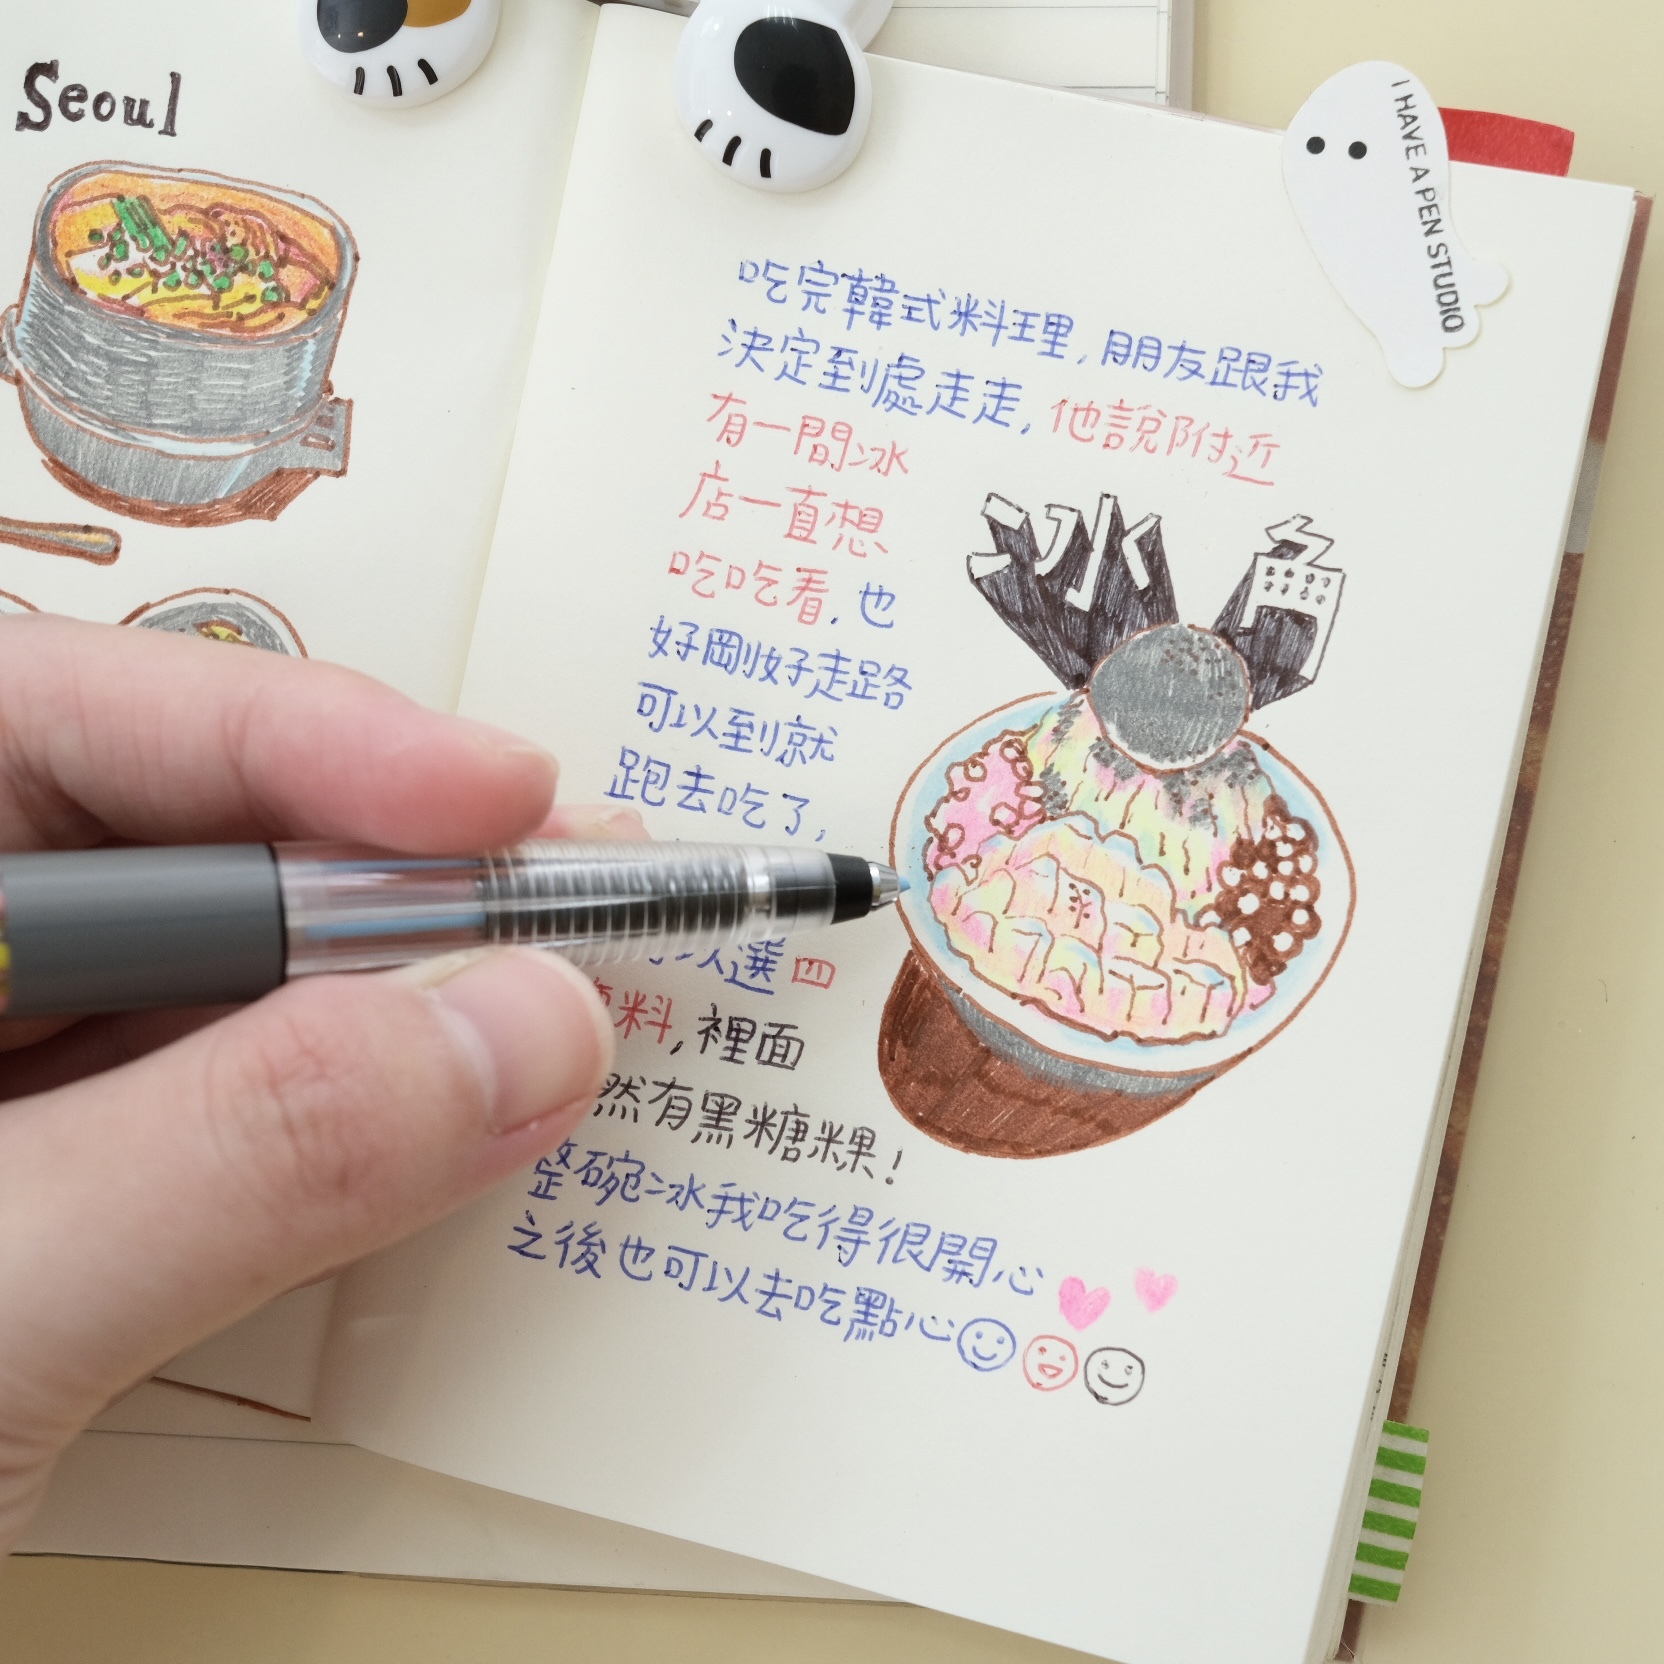 Seoul
I HAVE A PEN STUDIO
吃完韓式料理,朋友跟我
決定到處走走,他說附近
有一間冰
店一直想
吃吃看,也
好剛好走路
可以到就
跑去吃了,
以選四
料,裡面
然有黑糖粿!
整碗冰我吃得很開心
之後也可以去吃點心
冰